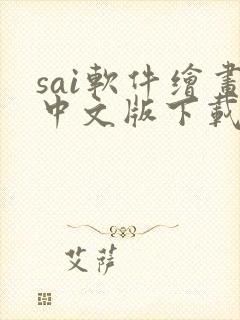 sai軟件繪畫
中文版下載
艾薩